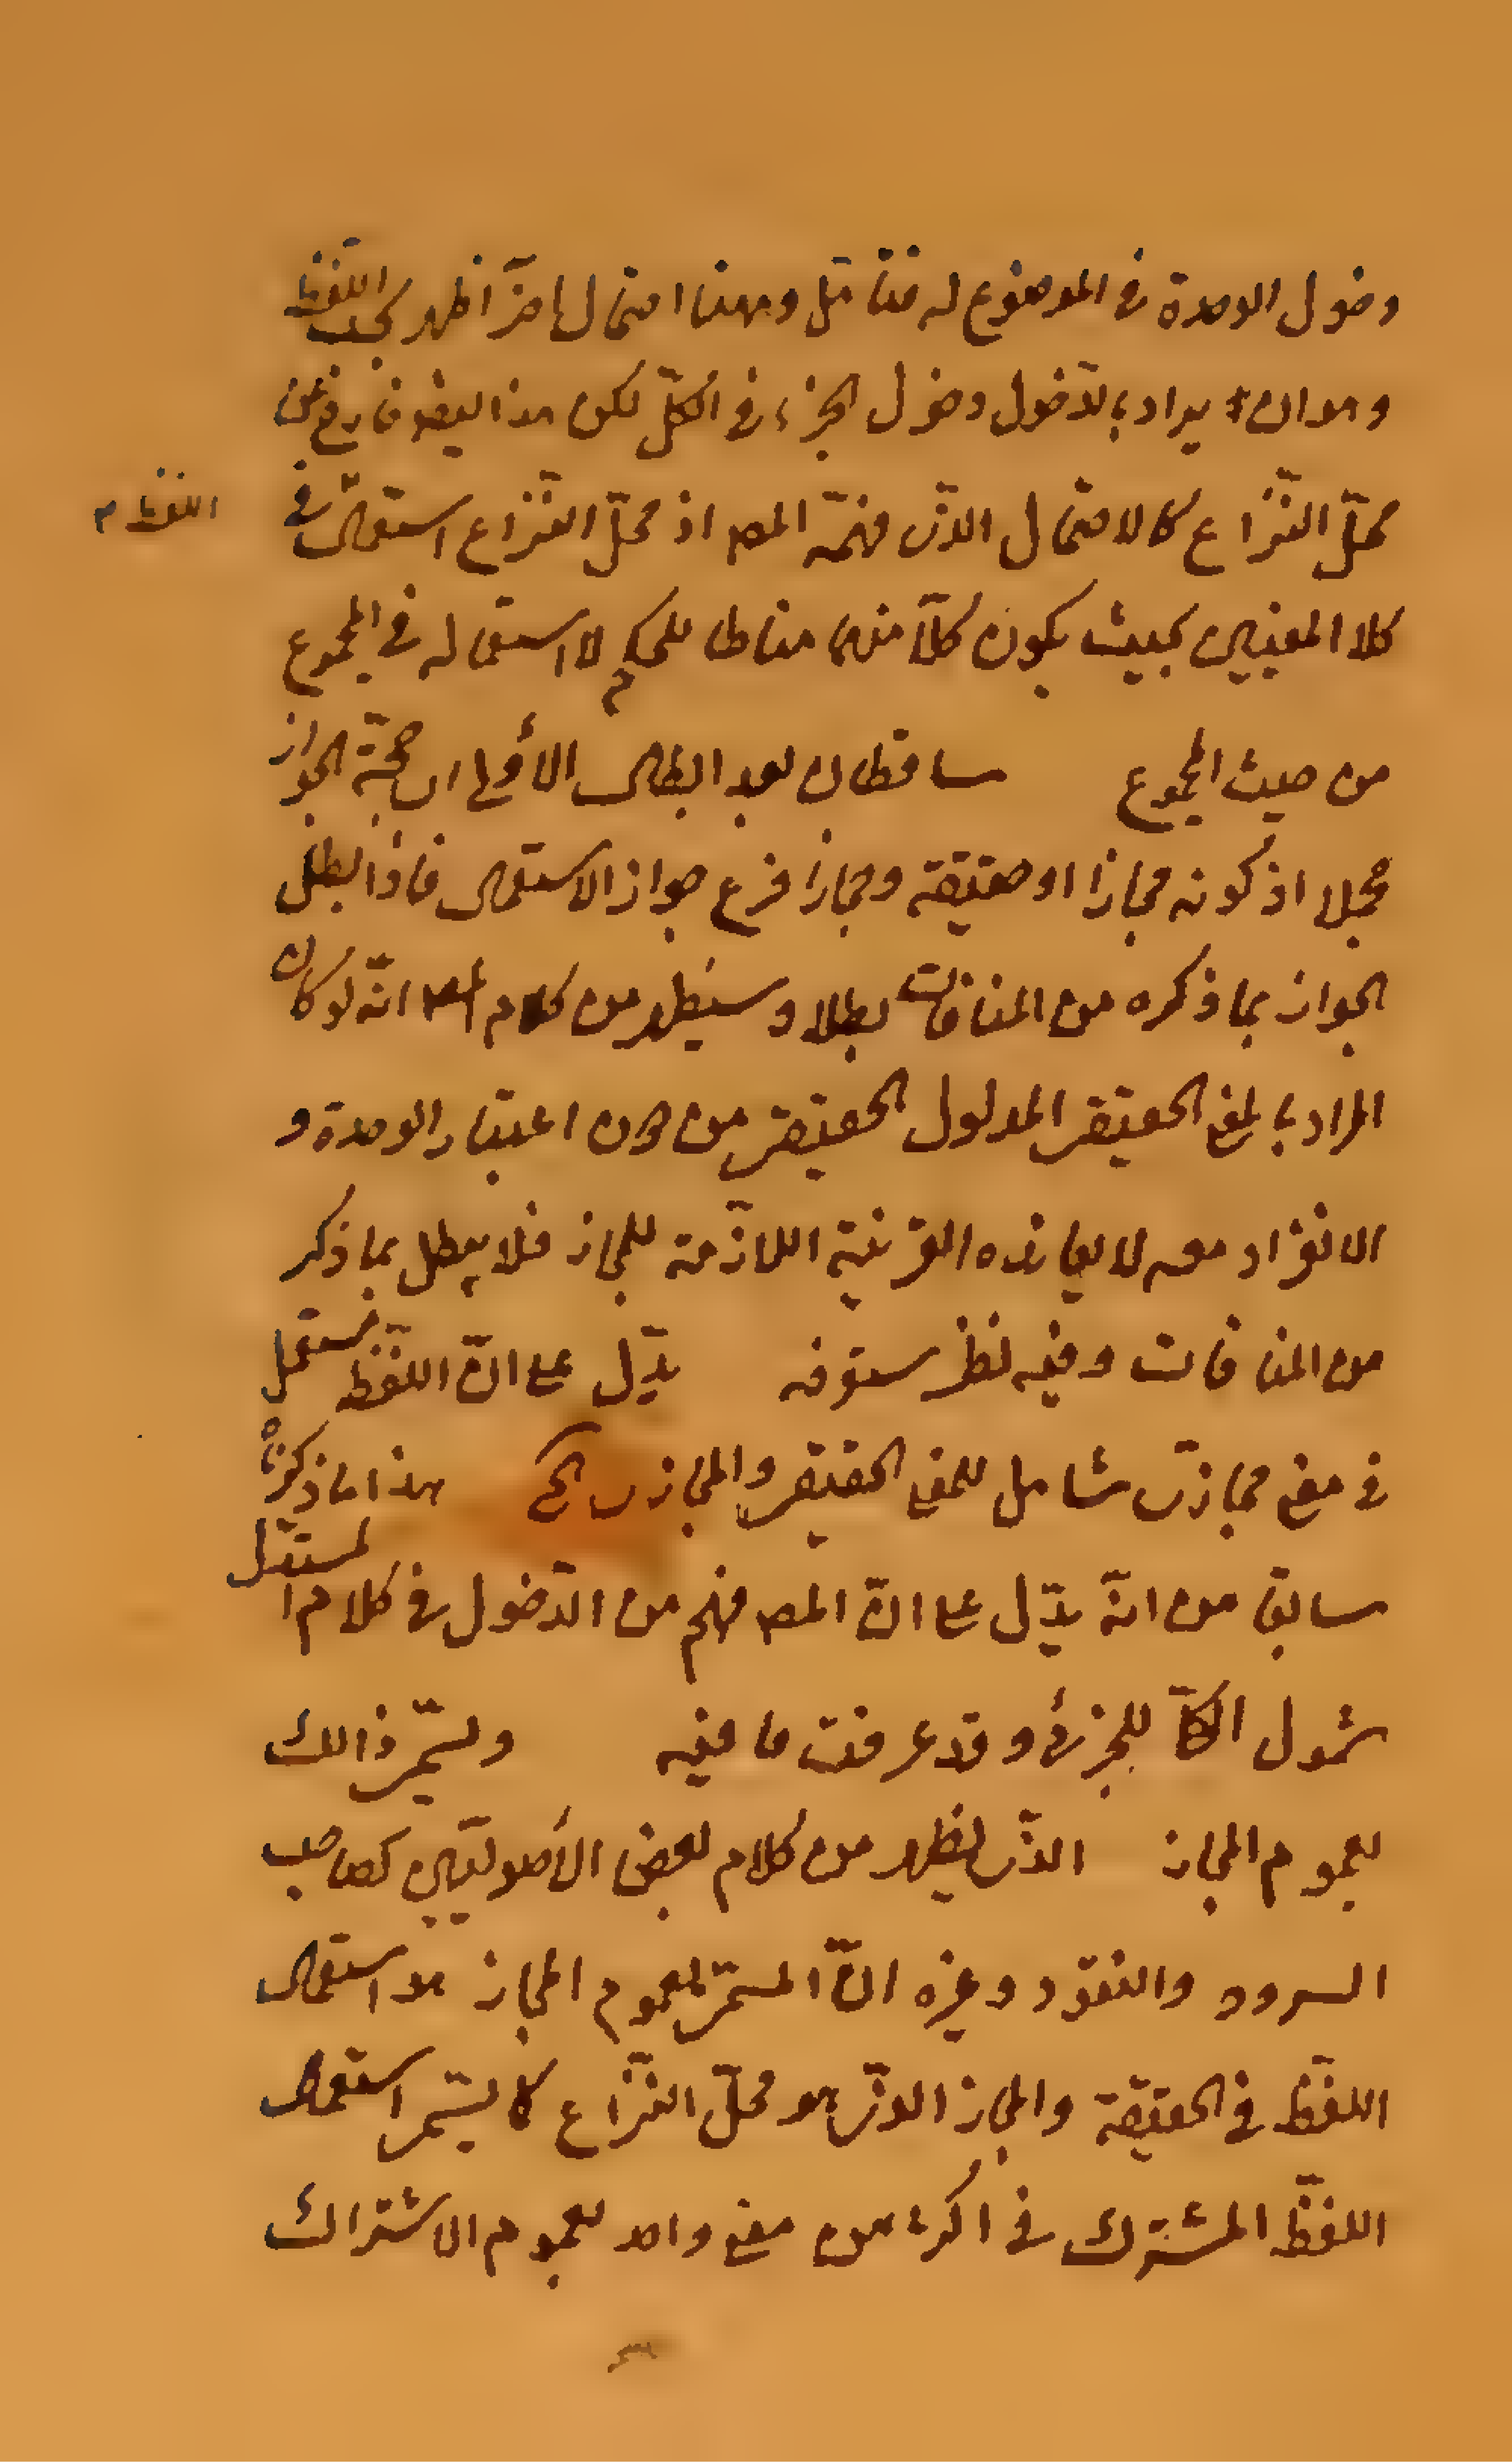 دخول الوحدة فى الموضوع له فتأمّل وههنا احتمال اخر اظهر بحسب اللّفظ
وهو ان يراد بالدّخول دخول الجزء فى الكلّ لكن هذا ايضا خارج عن
محلّ النّزاع كالاحتمال الذّى فهمه المصـ اذ محلّ النّزاع استعمال فى
اللفظ م
كلا المعنيين بحيث يكون كلّا منهما مناطا للحكم لا استعماله فى المجموع
من حيث المجموع ساقطان بعد ابطال الأولى ان حجّة الجواز
مجملا اذ كونه مجازا او حقيقة ومجازا فرع جواز الاستعمال فاذا بطل
الجواز بما ذكره من المنافات بطلا وسيظهر من كلام المصـ انّه لو كان
المراد بالمعنى الحقيقى المدلول الحقيقى من دون اعتبار الوحدة و
الانفراد معه لا يعانده القرينة اللازّمة للمجاز فلا يبطل بما ذكر
من المنافات وفيه نظر ستعرفه يدّل على انّ اللّفظ مستعمل
فى معنى مجازىّ شامل للمعنى الحقيقى والمجازى الخ هذا ما ذكرناه
سابق من انّه يدّل على انّ المصـ فهم من الدّخول فى كلام المستدل
شمول الكلّى للجزئى وقد عرفت ما فيه ويسمّى ذالك
بعموم المجاز الذّى يظهر من كلام بعض الأصوليّين كصاحب
السرود والنقود وغيره انّ المسمّى بعموم المجاز هو استعمال
اللّفظ فى الحقيقة والمجاز الذّى هو محلّ النّزاع كما يسمّى استعمال
اللفظّ المشترك فى اكثر من معنى واحد بعموم الاشتراك